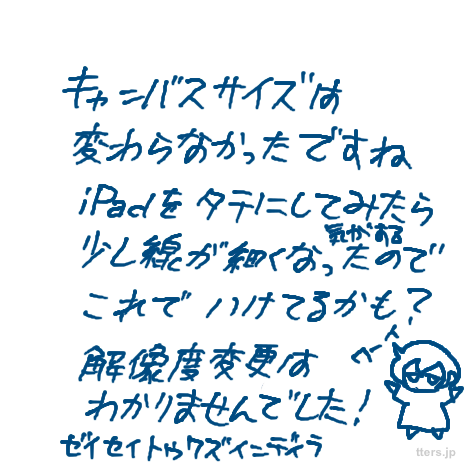 キャンバスサイズは
変わらなかったですね
iPadをタテにしてみたら
少し線が細くなった気がするので
これでいけてるかも?
解像度変更は
わかりませんでした!
ゼイセイトゥワズインディラ
ヘーイ
tters.jp